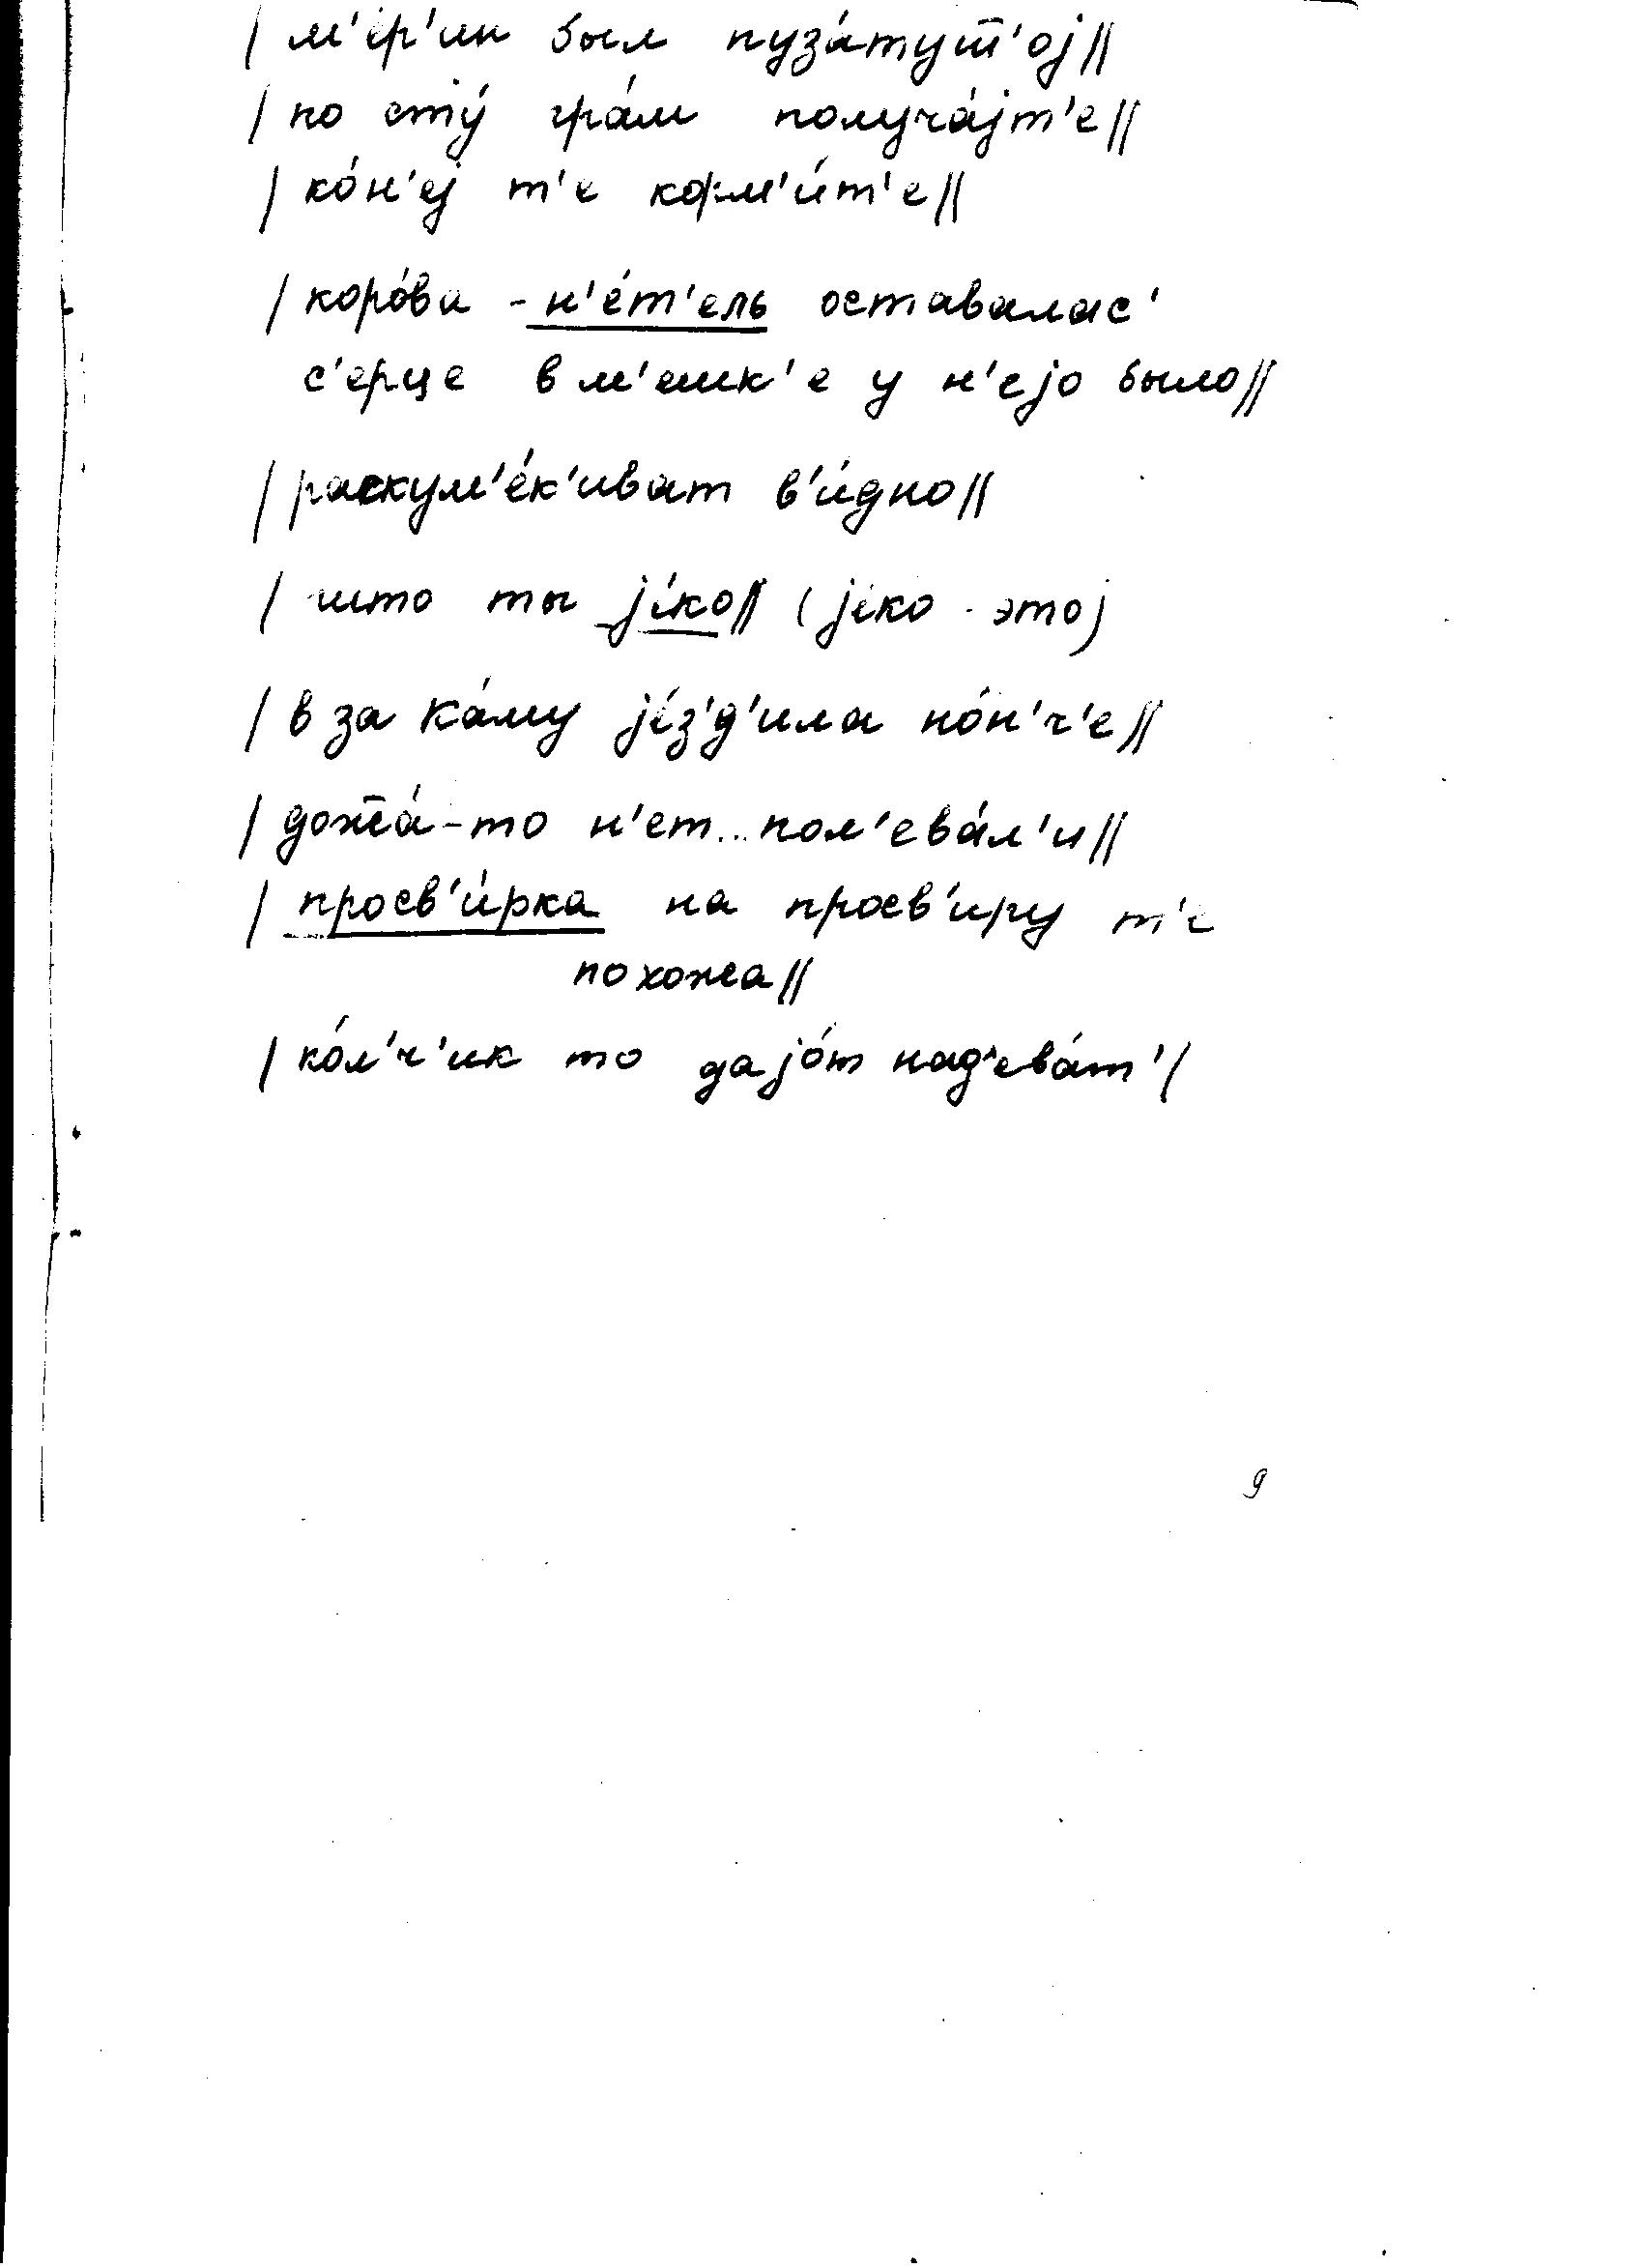 / м'е́р'ин был пуза́тут̅'ој//
/ по сту́ гра́м получа́јт'е//
/ ко́н'еј т'е корм'и́т'е//
/ коро́ва - н'е́т'ель оставалас'
с'ерце в м'ешк'е у н'ејо было//
/ раскум'е́к'иват в'и́дно//
/ што ты је́ко// (је́ко - это)
/ в за Ка́му је́з'д'ила но́н'ч'е//
/ дож̅а́-то н'ет... пол'ева́л'и//
/ просв'и́рка на просв'иру т'е
похожа//
/ ко́л'ч'ик то дајо́т над'ева́т'/
9